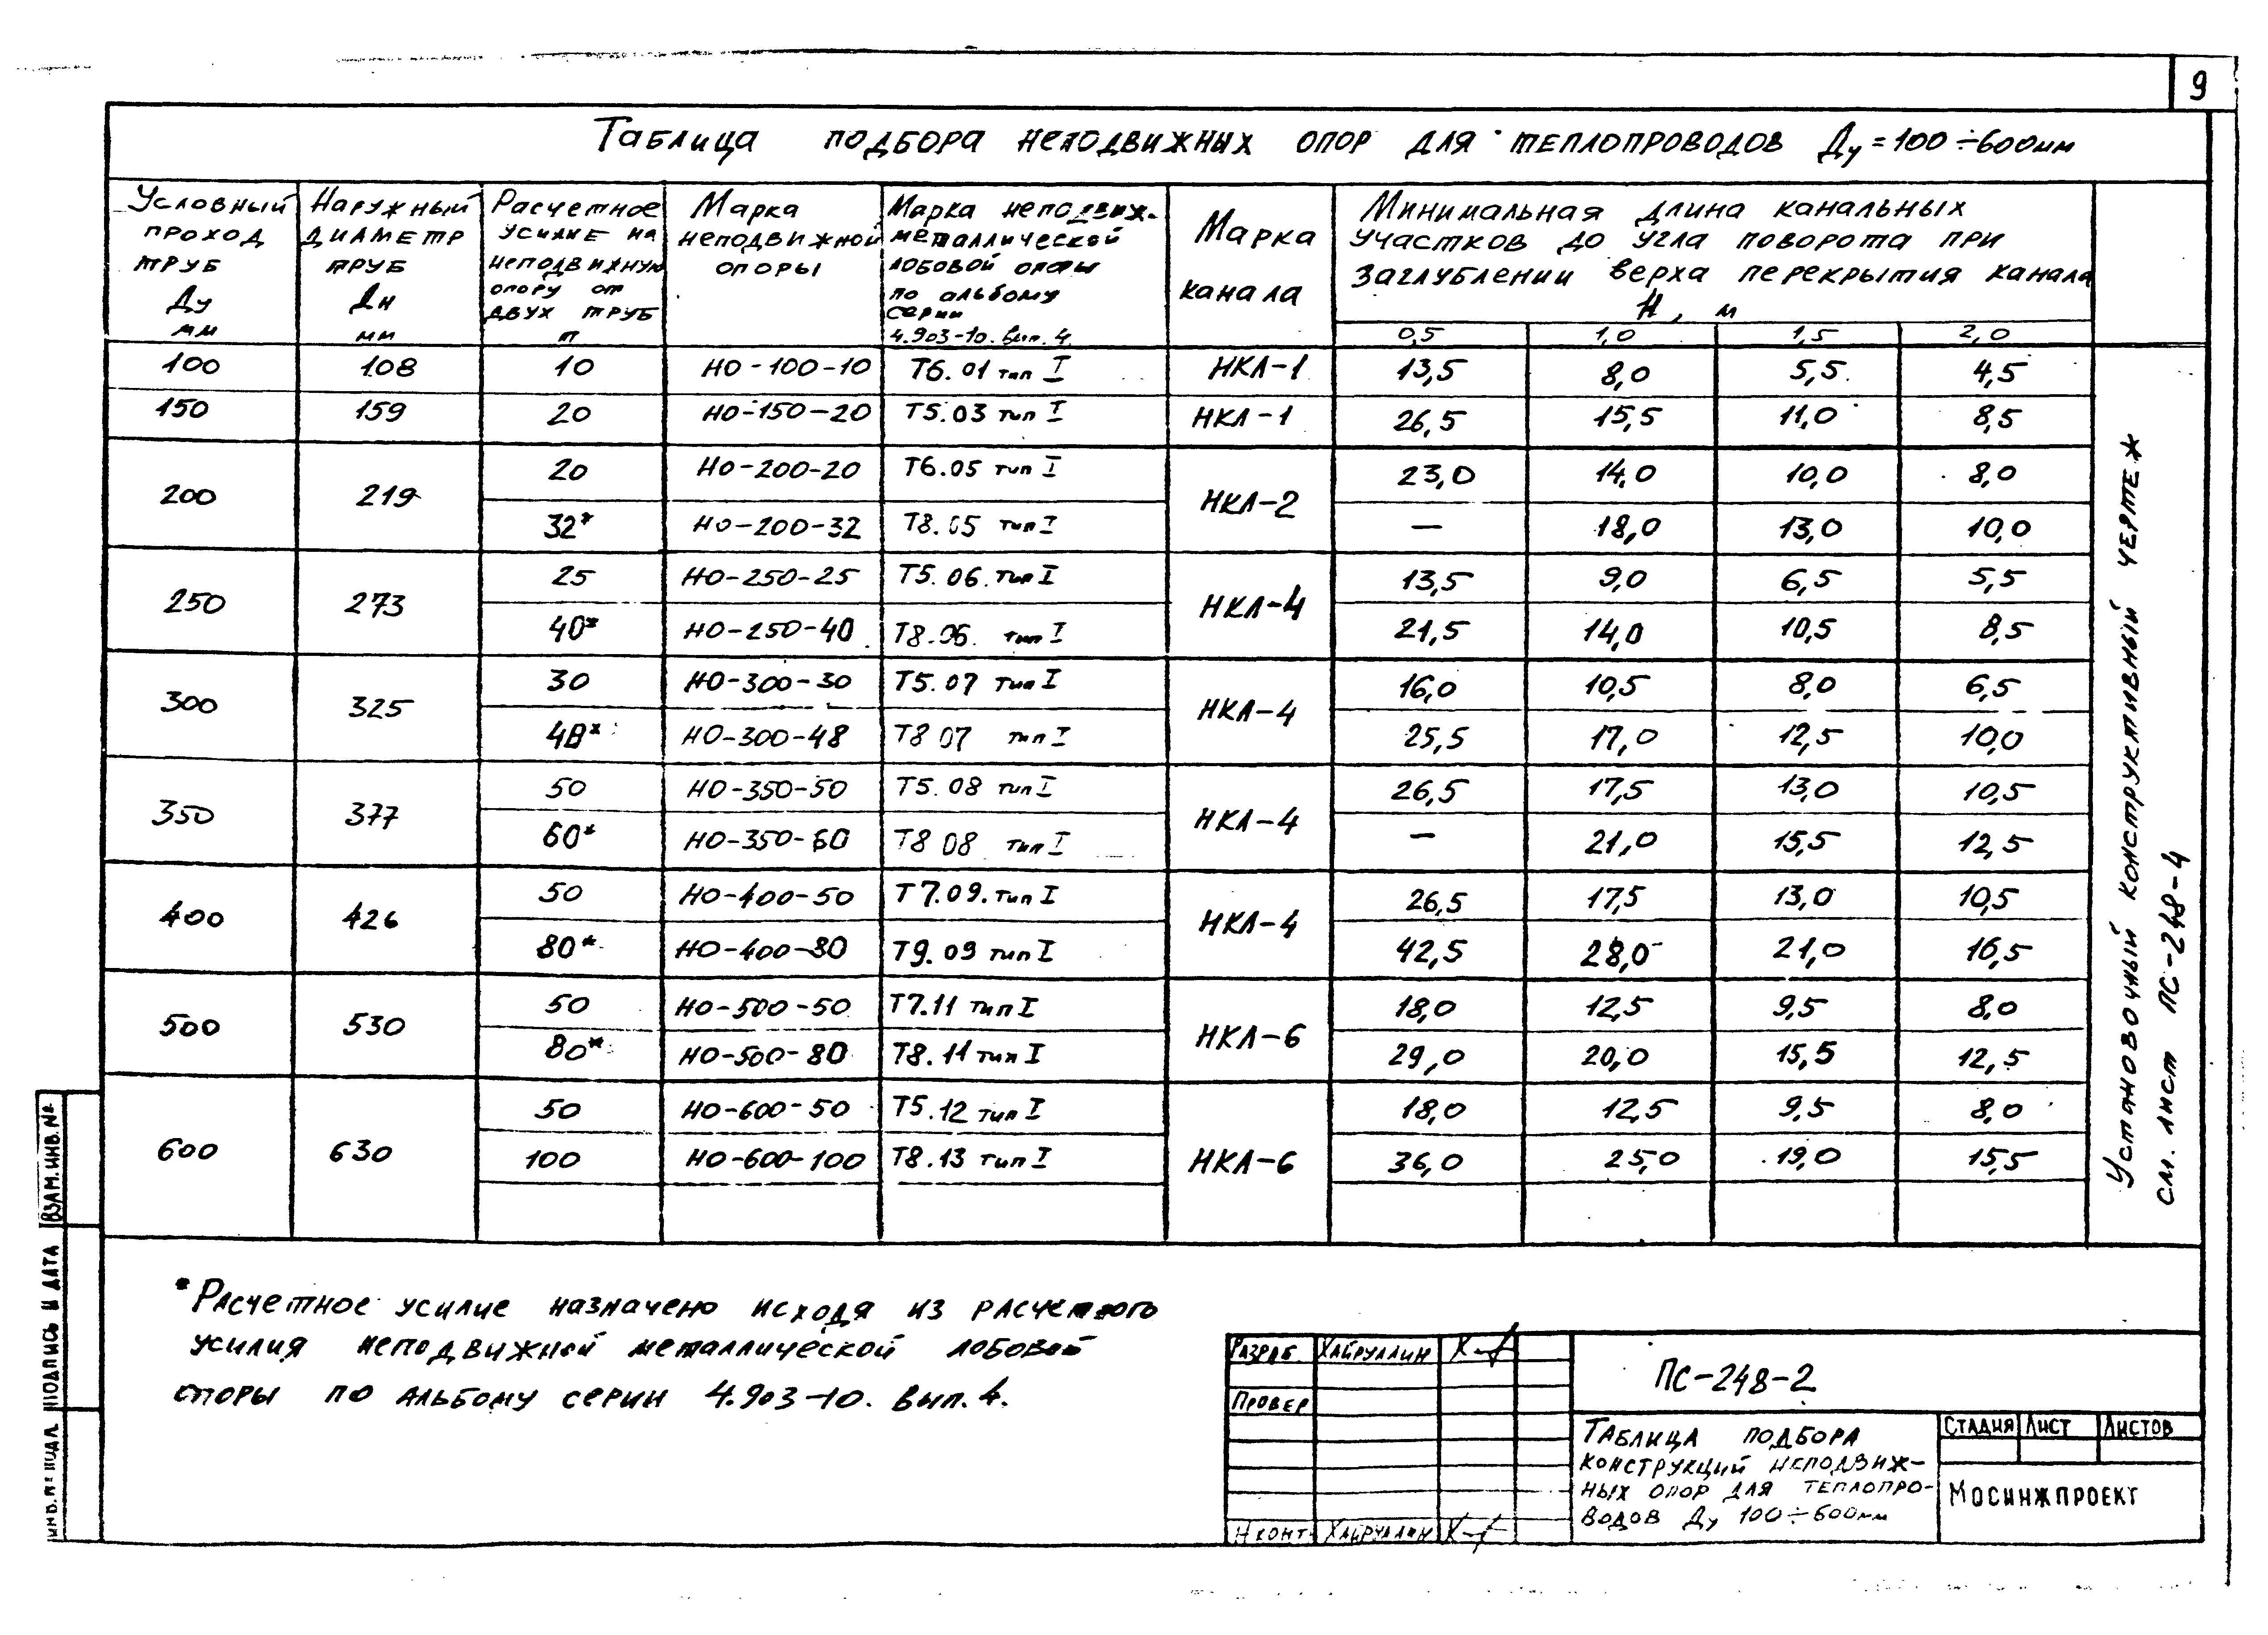 9
Таблица подбора неподвижных опор для теплопроводов Ду = 100÷600мм
Условный проход труб Ду мм
Наружный диаметр труб Дн мм
Расчетное усилие на неподвижную опору от двух труб т
Марка неподвижной опоры
Марка неподвиж. металлической лобовой опоры по альбому серии 4.903-10. Вып. 4
Марка канала
Минимальная длина канальных участков до угла поворота при заглублении верха перекрытия канала Н, м
0,5 1,0 1,5 2,0
100 108 10 НО-100-10 Т6.01 тип I НКЛ-1 13,5 8,0 5,5 4,5
150 159 20 НО-150-20 Т5.03 тип I НКЛ-1 26,5 15,5 11,0 8,5
200 219 20 НО-200-20 Т6.05 тип I НКЛ-2 23,0 14,0 10,0 8,0
32* НО-200-32 Т8.05 тип I — 18,0 13,0 10,0
250 273 25 НО-250-25 Т5.06. тип I НКЛ-4 13,5 9,0 6,5 5,5
40* НО-250-40 Т8.06. тип I 21,5 14,0 10,5 8,5
300 325 30 НО-300-30 Т5.07 тип I НКЛ-4 16,0 10,5 8,0 6,5
48* НО-300-48 Т8 07 тип I 25,5 17,0 12,5 10,0
350 377 50 НО-350-50 Т5.08 тип I НКЛ-4 26,5 17,5 13,0 10,5
60* НО-350-60 Т8 08 тип I — 21,0 15,5 12,5
400 426 50 НО-400-50 Т7.09. тип I НКЛ-4 26,5 17,5 13,0 10,5
80* НО-400-80 Т9.09 тип I 42,5 28,0 21,0 16,5
500 530 50 НО-500-50 Т7.11 тип I НКЛ-6 18,0 12,5 9,5 8,0
80* НО-500-80 Т8.11 тип I 29,0 20,0 15,5 12,5
600 630 50 НО-600-50 Т5.12 тип I НКЛ-6 18,0 12,5 9,5 8,0
100 НО-600-100 Т8.13 тип I 36,0 25,0 19,0 15,5
Установочный конструктивный чертеж
см. лист ПС-248-4
*Расчетное усилие назначено исходя из расчетного
усилия неподвижной металлической лобовой
опоры по альбому серии 4.903-10. Вып. 4.
Разраб. Хайруллин
Провер
Н конт. Хайруллин
ПС-248-2
Таблица подбора
конструкций неподвиж-
ных опор для теплопро-
водов Ду 100÷600мм
Стадия Лист Листов
Мосинжпроект
Взам. инв. №
Подпись и дата
Инв. № подл.